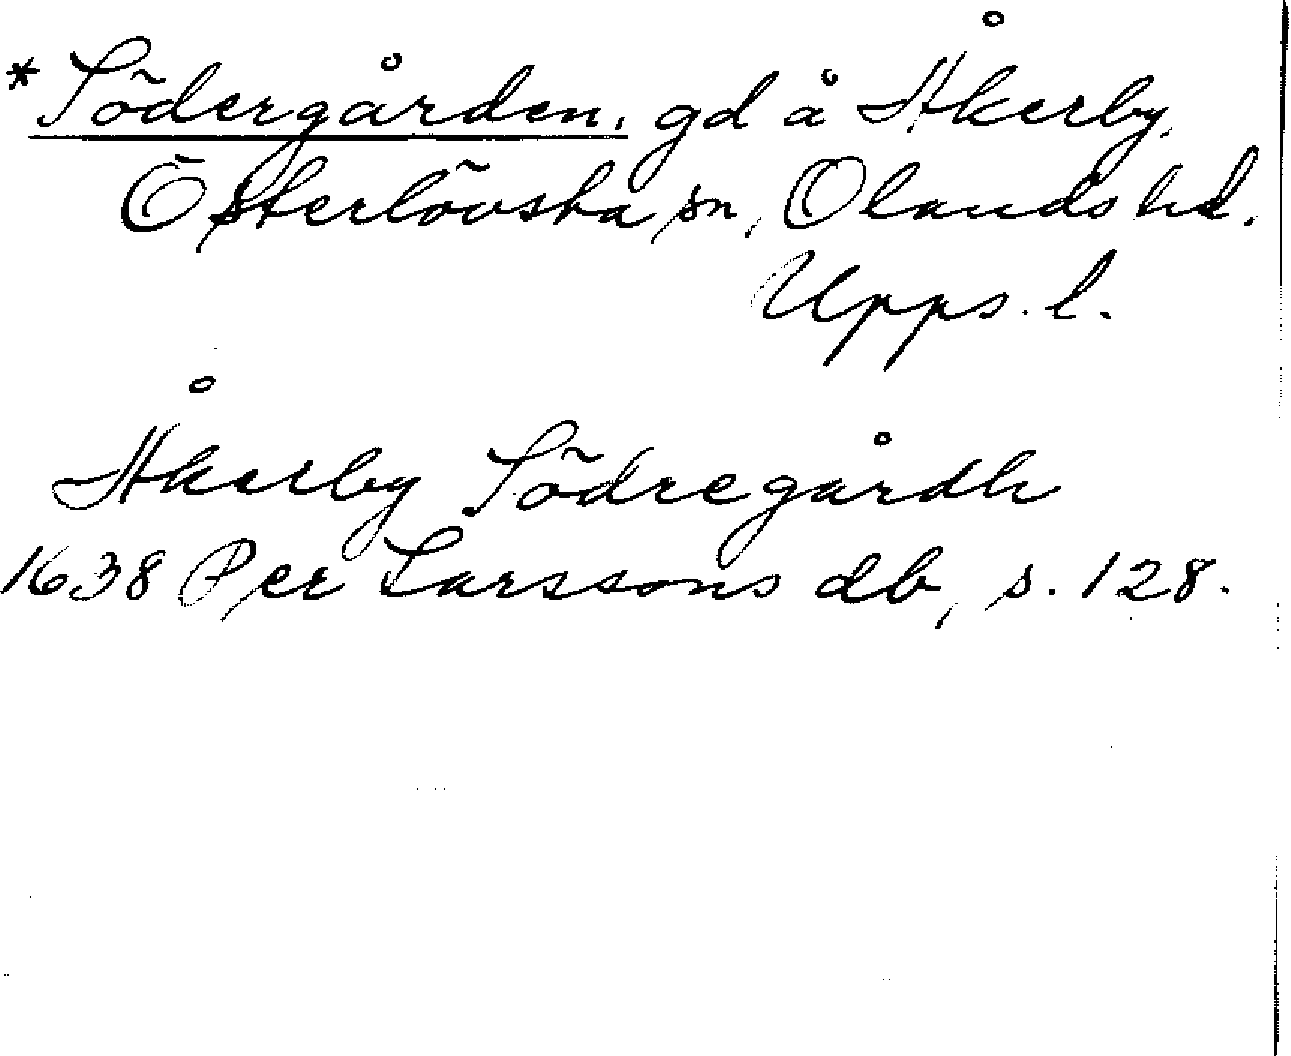 *Södergården, gd å Åkerby,
Österlövsta sn, Olands hd.
Upps. l.
Åkerby Södregårdh
1638 Per Larssons db, s. 128.